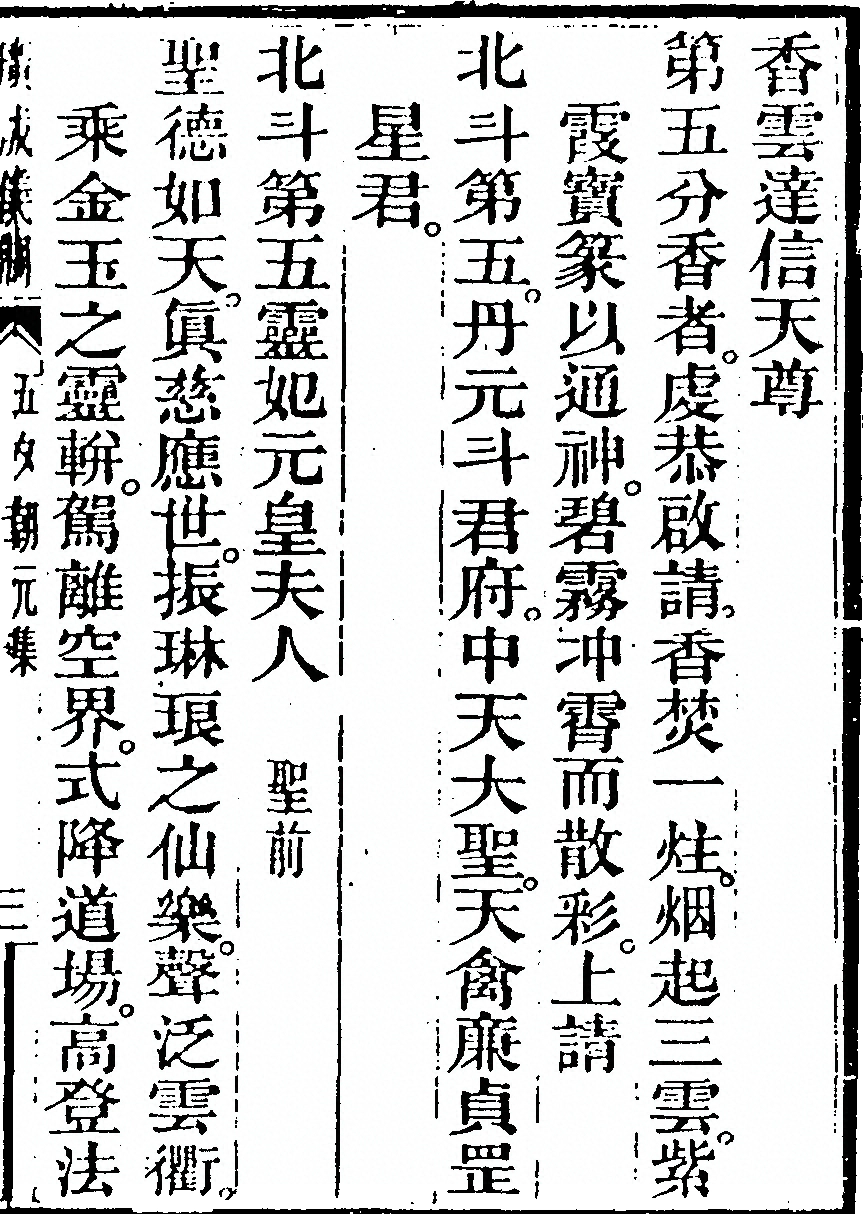 香雲達信天尊
第五分香者。虔恭啟請。香焚一炷。烟起三雲。紫
霞寶篆以通神。碧霧冲霄而散彩。上請
北斗第五。丹元斗君府。中天大聖。天禽廉貞罡
星君。
北斗第五靈妃元皇夫人 聖前
聖德如天。眞慈應世。振琳琅之仙樂。聲泛雲衢。
乘金玉之靈軿。駕離空界。式降道場。高登法
五夕朝元集
三